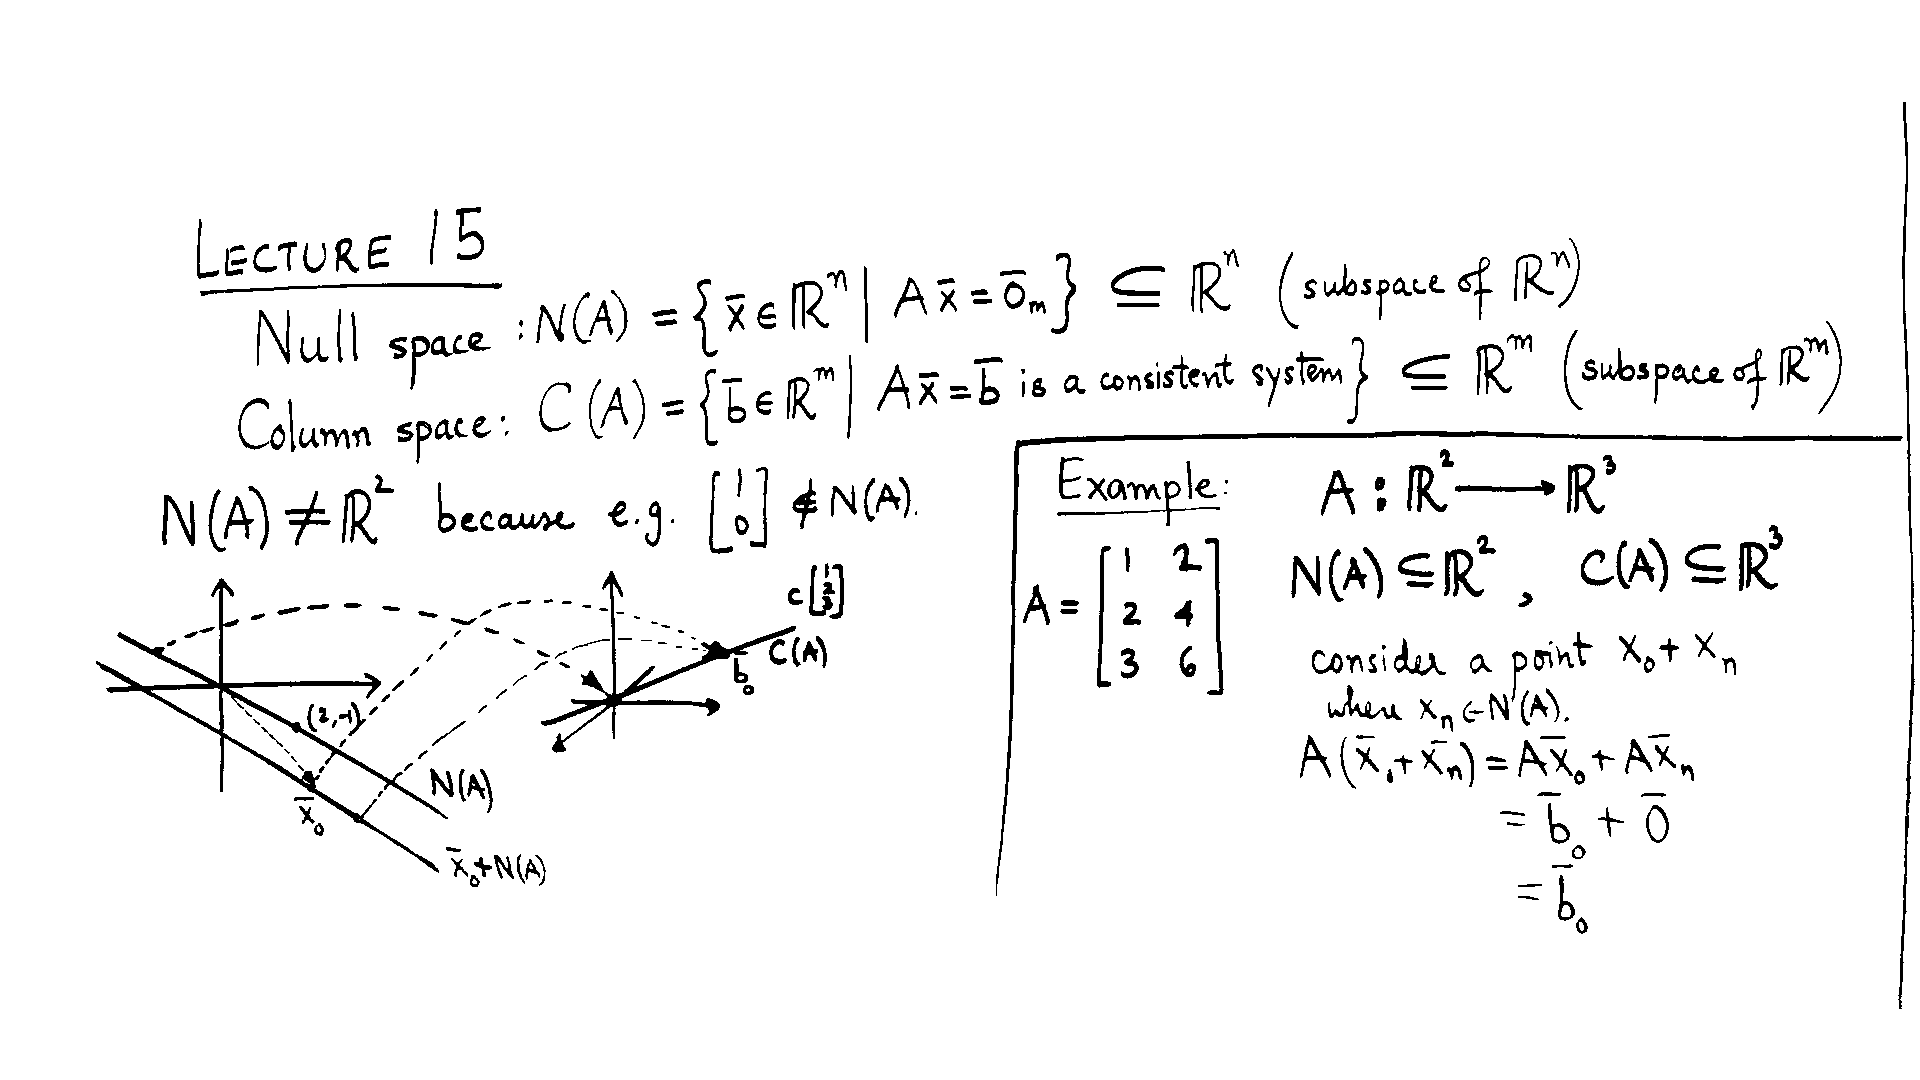 LECTURE 15
Null space : N(A) = { x̄ ∈ ℝⁿ | A x̄ = 0̄ₘ } ⊆ ℝⁿ (subspace of ℝⁿ)
Column space: C(A) = { b̄ ∈ ℝᵐ | A x̄ = b̄ is a consistent system } ⊆ ℝᵐ (subspace of ℝᵐ)
N(A) ≠ ℝ² because e.g. [1 0] ∉ N(A).
c [1 2 3]
C(A)
b̄₀
(2,-1)
N(A)
x̄₀
x̄₀+N(A)
Example: A : ℝ² ⟶ ℝ³
N(A) ⊆ ℝ² , C(A) ⊆ ℝ³
A = [1 2
2 4
3 6]
consider a point x₀ + xₙ
where xₙ ∈ N(A).
A(x̄₀ + x̄ₙ) = A x̄₀ + A x̄ₙ
= b̄₀ + 0̄
= b̄₀